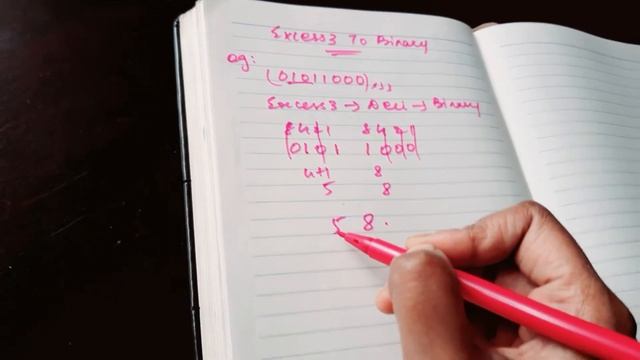 Excess 3 To Binary
eg:
(01011000)
Excess3 → Deci → Binary
8421 8421
0101 1000
4+1 8
5 8
5 8.